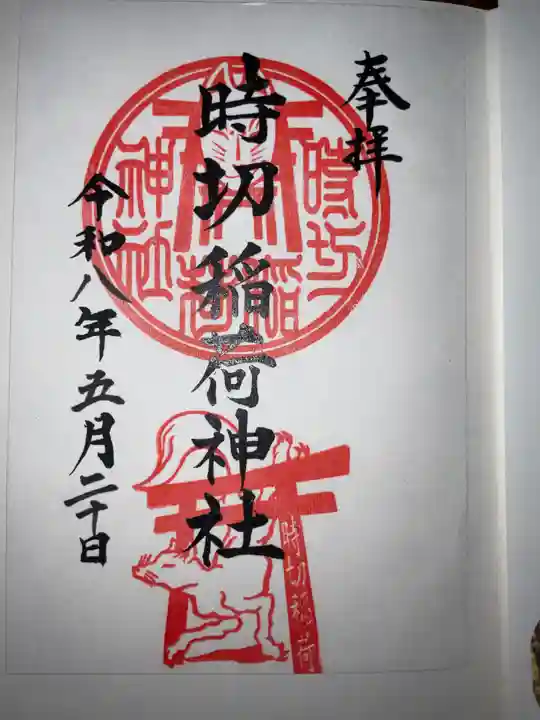 奉拝
時切稲荷神社
令和八年五月二十日
時切
稲荷
神社
時切稲荷